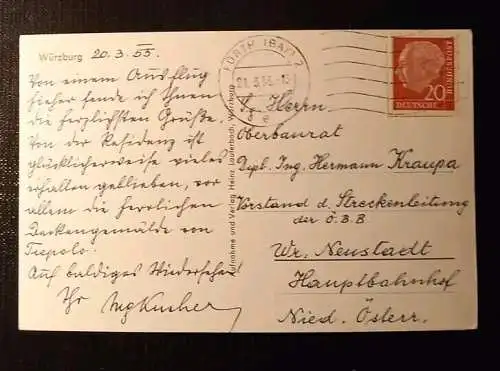 Würzburg 20.3.55.
Von einem Ausflug
hieher sende ich Ihnen
die herzlichsten Grüße.
Von der Residenz ist
glücklicherweise vieles
erhalten geblieben, vor
allem die herrlichen
Deckengemälde von
Tiepolo.
Auf baldiges Wiedersehen!
Ihr
Aufnahme und Verlag Heinz Lauterbach, Würzburg
FÜRTH (BAY) 2
21.3.55
e
20
DEUTSCHE
BUNDESPOST
Herrn
Oberbaurat
Dipl. Ing. Hermann Kraupa
Vorstand d. Streckenleitung
der Ö.B.B
Wr. Neustadt
Hauptbahnhof
Nied. Österr.